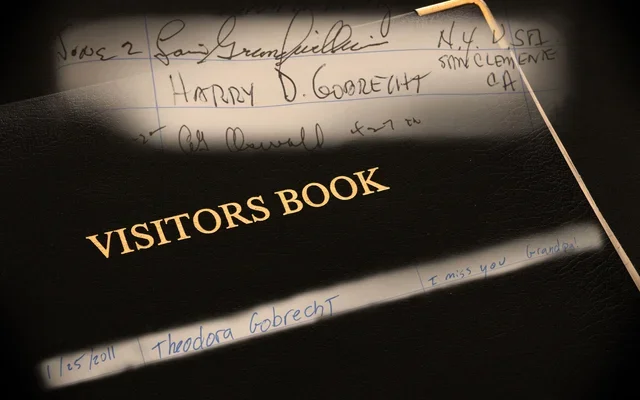 June 2
N.Y. USA
HARRY D. GOBRECHT SAN CLEMENTE
CA
VISITORS BOOK
1/25/2011 Theodora Gobrecht I miss you Grandpa!